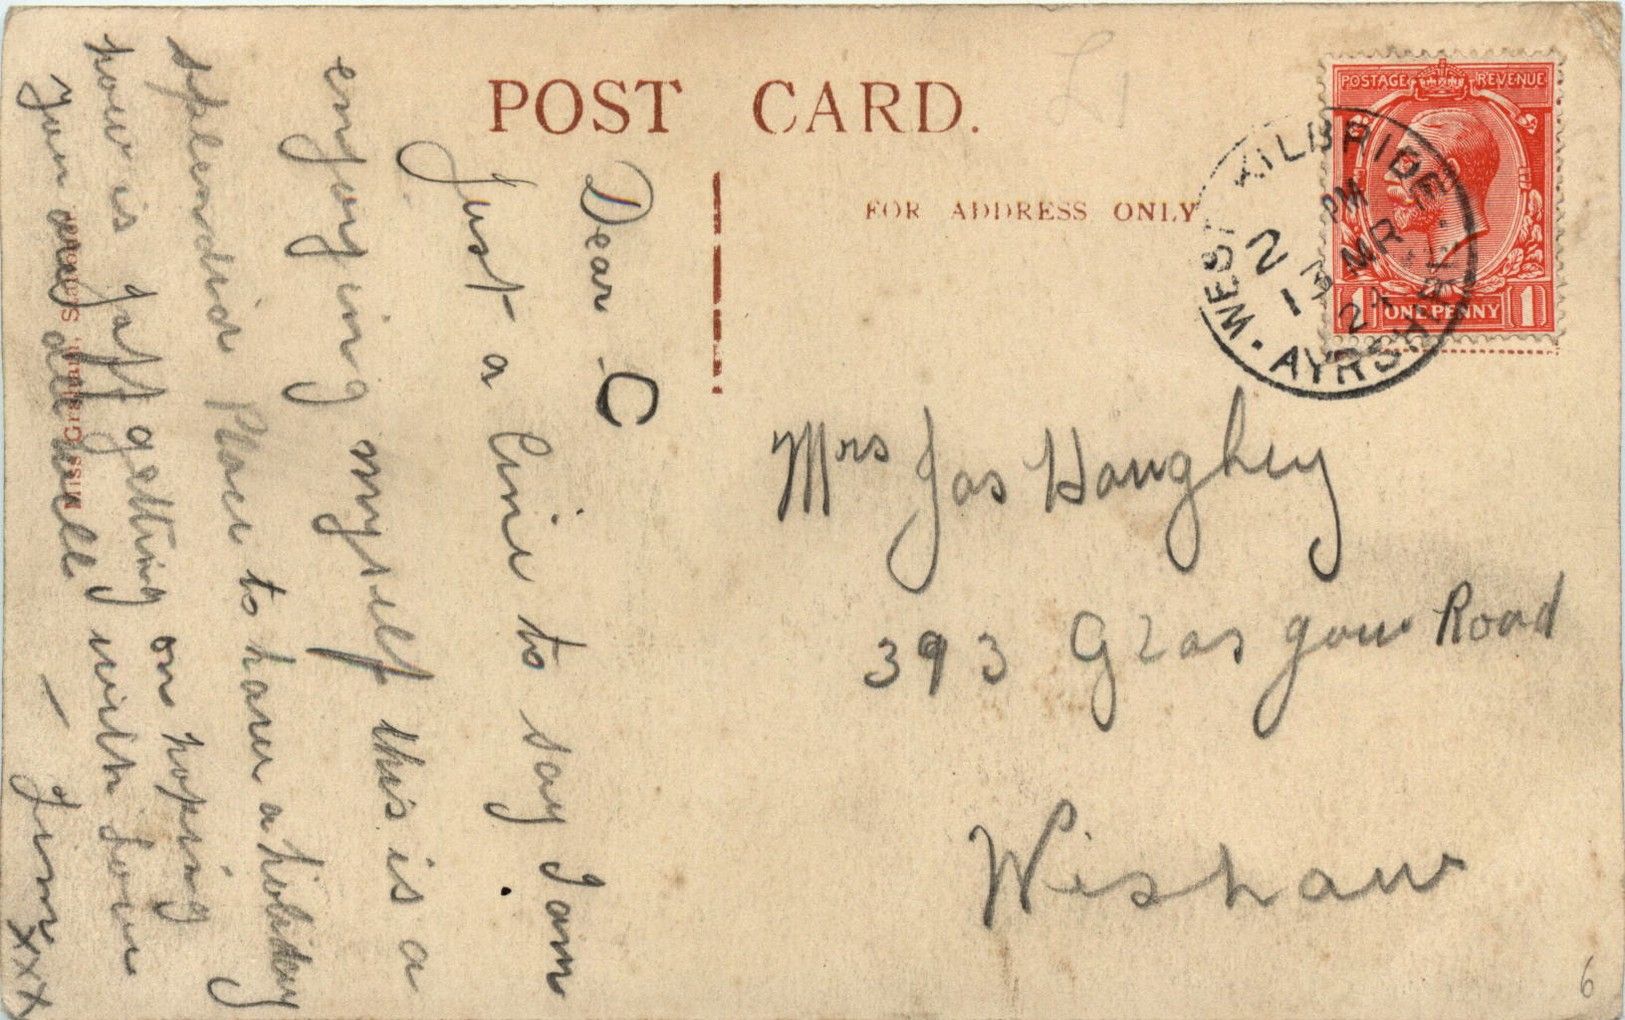 POST CARD.
FOR ADDRESS ONLY
POSTAGE REVENUE
ONE PENNY
1 1
WEST KILBRIDE · AYRSHIRE
2 PM
13 MR
24
£1
Mrs Jas Haughey
393 Glasgow Road
Wishaw
Dear C
Just a line to say I am
enjoying myself this is a
splendid Place to have a holiday
how is Jaff getting on hoping
you are all well with love
— Jim
xxx
Miss Graham,
6